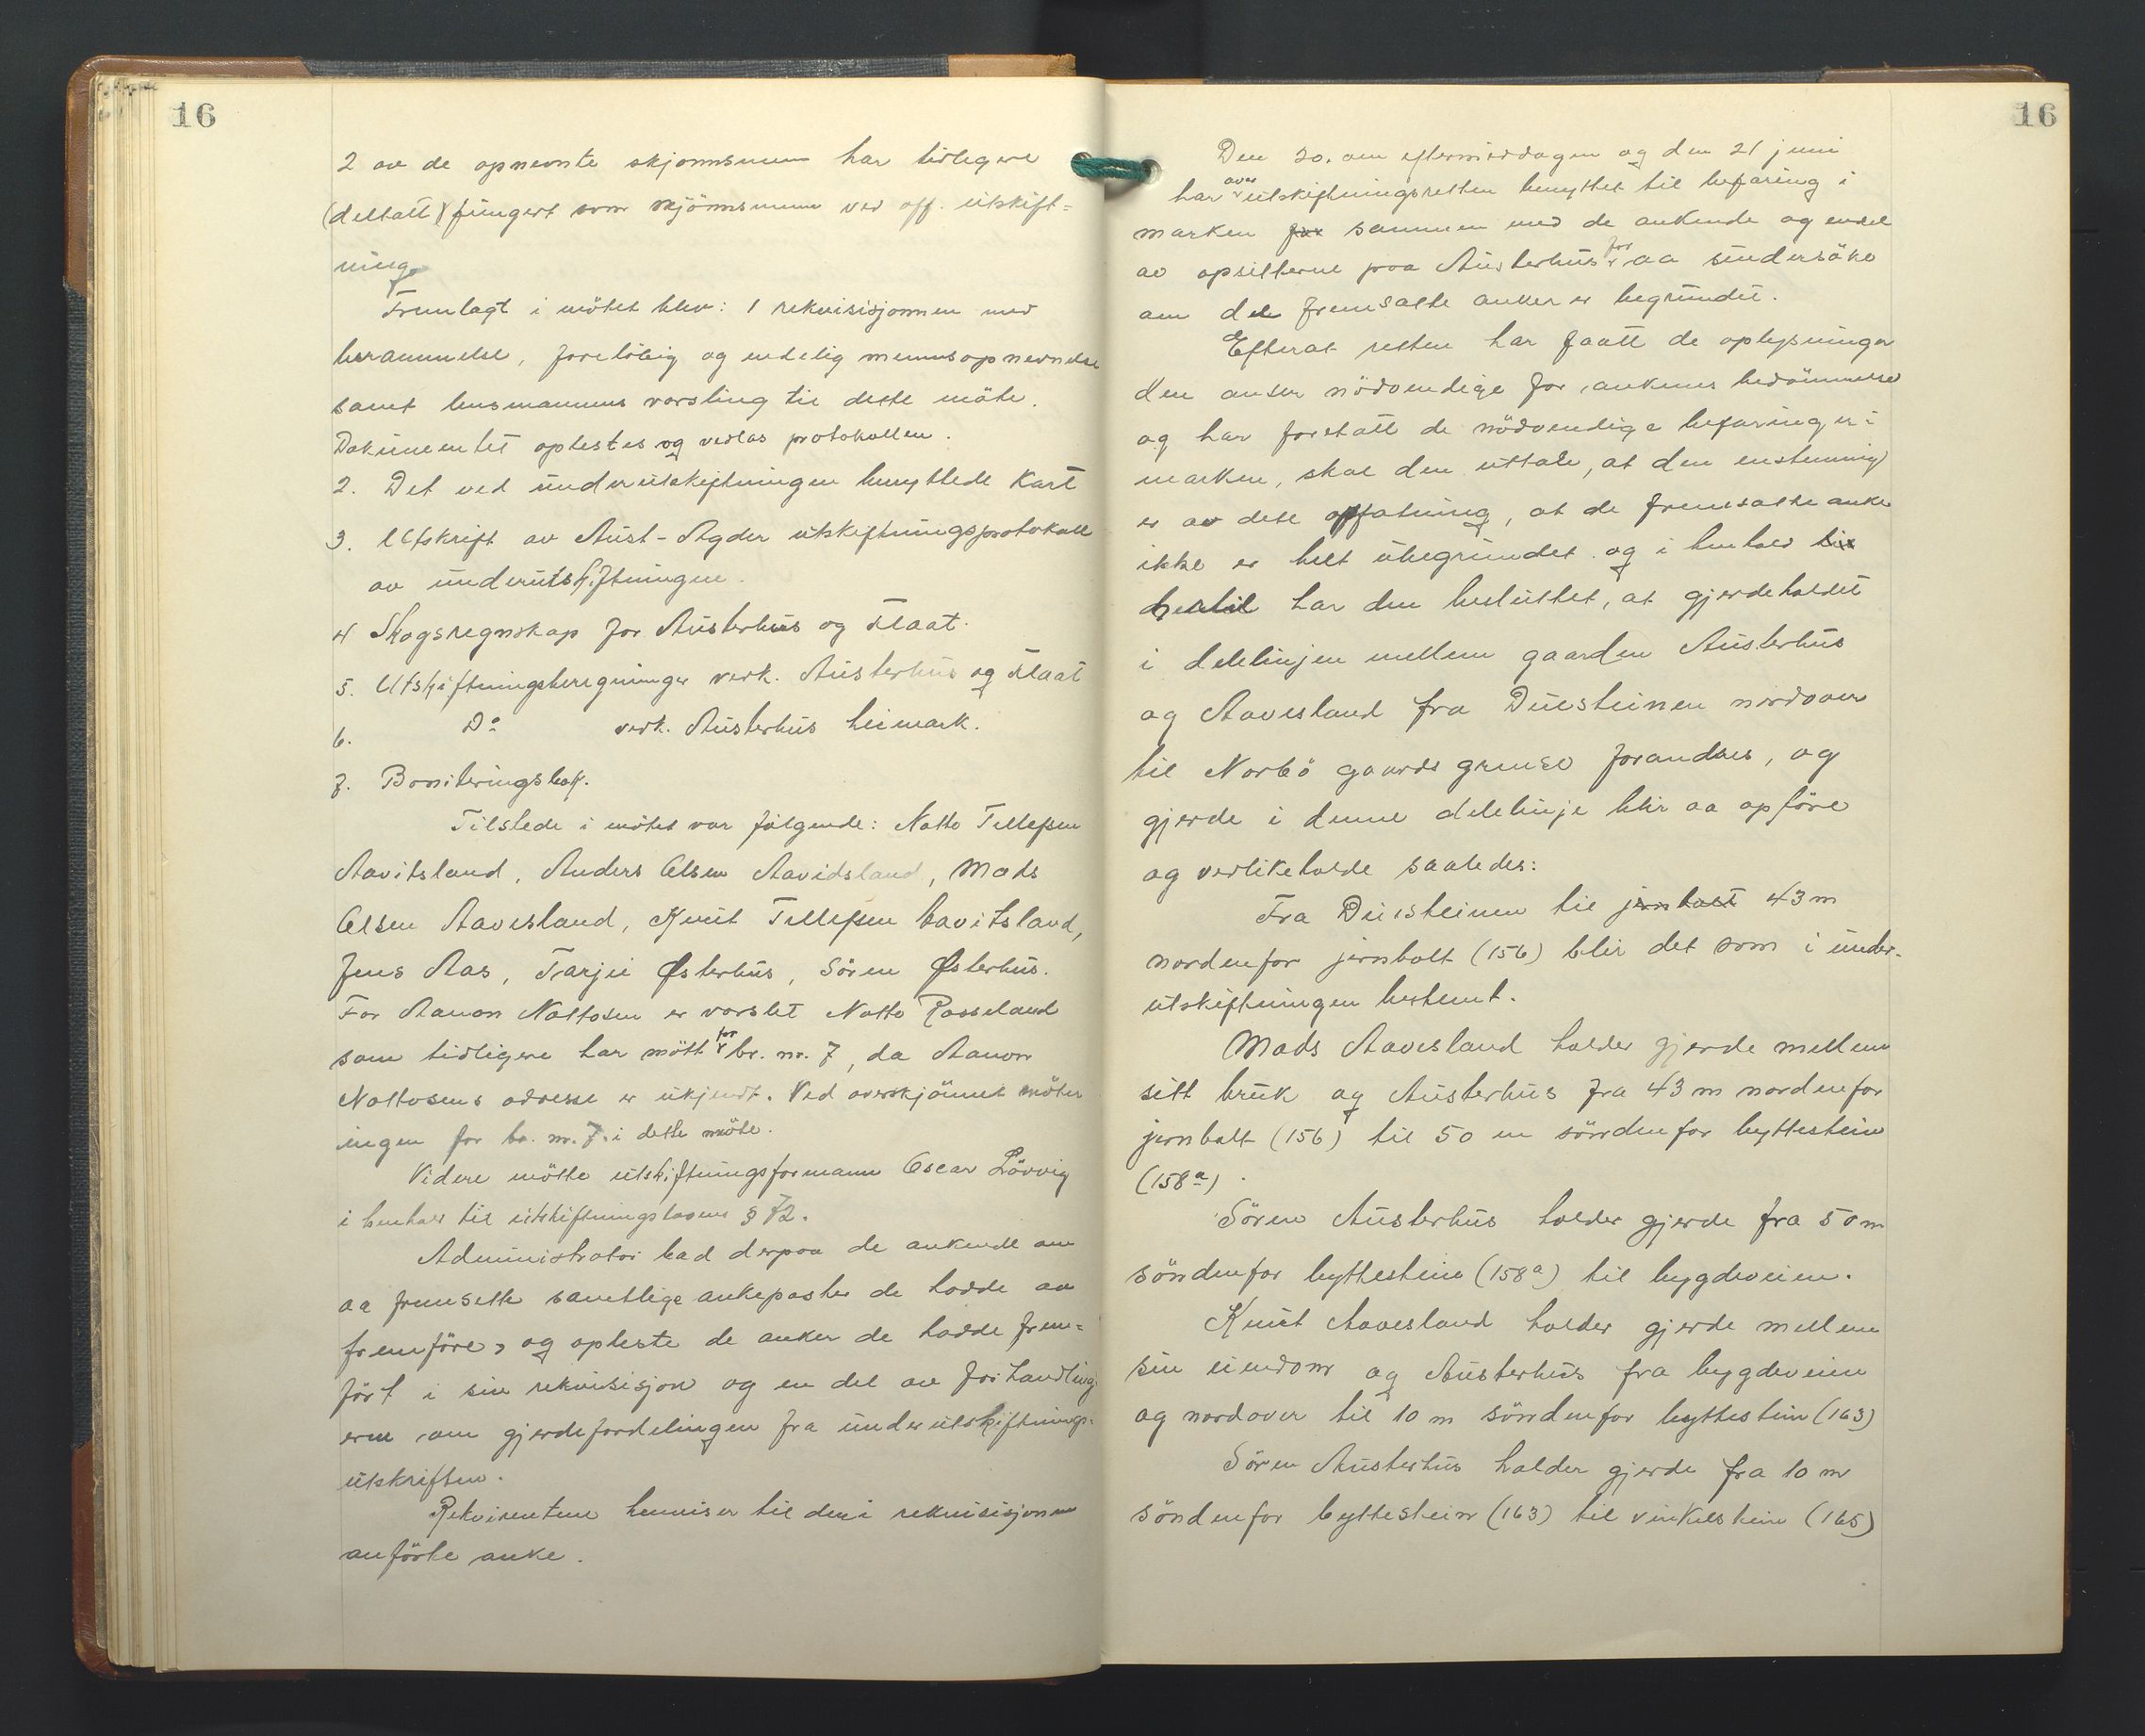 16
2 av de opnevnte skjønnsmenn har tidligere
(deltatt) fungert som skjönnsmenn ved off. utskift=
ning.
Fremlagt i mötet blev: 1 rekvisisjonen med
berammelse, forelöbig og endelig mennsopnevnelse
samt lensmannens varsling til dette möte.
Dokumentet oplestes og vedlas protokollen.
2. Det ved underutskiftningen benyttede kart
3. Utskrift av Aust-Agder utskiftningsprotokoll
av underutskiftningen.
4 Skogsregnskap for Austerhus og Flaat.
5. Utskiftningsberegninger vedk. Austerhus og Flaat
6. Do vedk. Austerhus heimark.
7. Boniteringsbok.
Tilstede i mötet var fölgende: Notto Tellefsen
Aavitsland, Anders Olsen Aavidsland, Mads
Olsen Aavesland, Knut Tellefsen Aavitsland,
Jens Aas, Tarjei Østerhus, Sören Østerhus.
For Aanon Nottosen er varslet Notto Rosseland
som tidligere har mött for br. nr. 7, da Aanon
Nottosens adresse er ukjendt. Ved overskjönnet möter
ingen for br. nr. 7. i dette möte.
Videre mötte utskiftningsformann Oscar Lövvig
i henhold til utskiftningslovens § 72.
Administrator bad derpaa de ankende om
aa fremsette samtlige ankeposter de hadde aa
fremföre, og opleste de anker de hadde frem=
fört i sin rekvisisjon og en del av forhandling
erne om gjerdefordelingen fra underutskiftnings=
utskriften.
Rekvirentene henviser til den i rekvisisjonen
anförte anke.
16
Den 20. om eftermiddagen og den 21 juni
har overutskiftningsretten benyttet til befaring i
marken for sammen med de ankende og endel
av opsitterne paa Austerhus for aa undersöke
om de fremsatte anker er begrundet.
Efterat retten har faatt de oplysninger
den anser nödvendige for ankenes bedömmelse
og har foretatt de nödvendige befaringer i
marken, skal den uttale, at den enstemmig
er av den opfatning, at de fremsatte anker
ikke er helt ubegrundet og i henhold til
hertil har den besluttet, at gjerdeholdet
i delelinjen mellem gaarden Austerhus
og Aavesland fra Duesteinen nordover
til Norbö gaards grense forandres, og
gjerde i denne delelinje blir aa opföre
og vedlikeholde saaledes:
Fra Duesteinen til jernbolt 43 m
nordenfor jernbolt (156) blir det som i under-
utskiftningen bestemt.
Mads Aavesland holder gjerde mellem
sitt bruk og Austerhus fra 43 m nordenfor
jernbolt (156) til 50 m söndenfor byttestein
(158a).
Sören Austerhus holder gjerde fra 50 m
söndenfor byttestein (158a) til bygdeveien.
Knut Aavesland holder gjerde mellem
sin eiendom og Austerhus fra bygdeveien
og nordover til 10 m söndenfor byttestein (163)
Sören Austerhus holder gjerde fra 10 m
söndenfor byttestein (163) til vinkelstein (165)